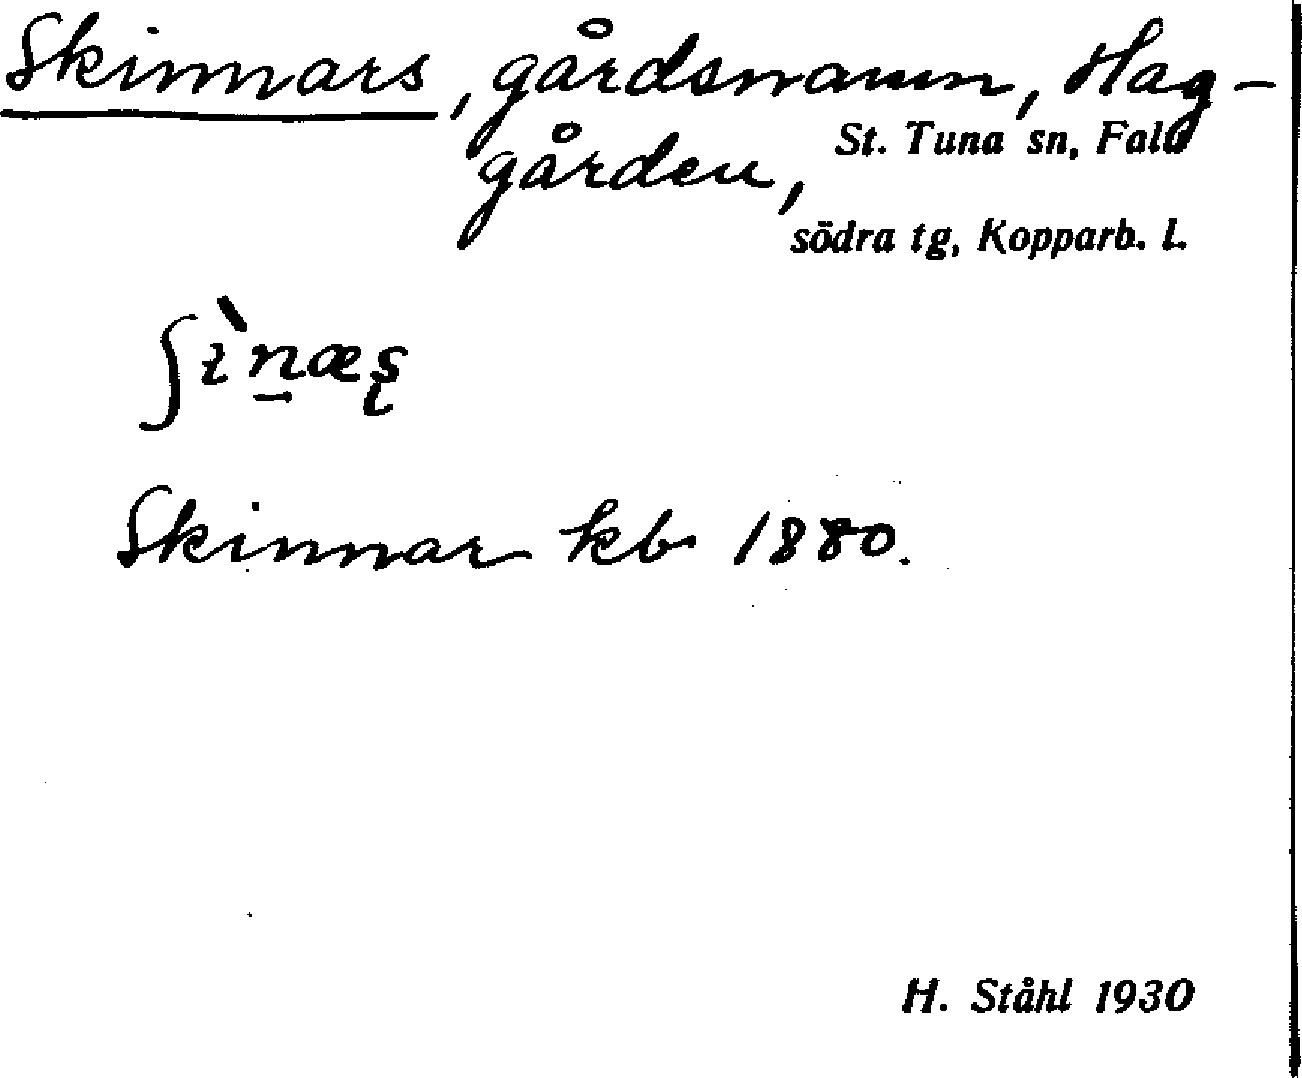 Skinnars, gårdsnamn, Hag-
gården, St. Tuna sn, Falu
södra tg, Kopparb. l.
ʃìn̠æʂ
Skinnar kb 1880.
H. Ståhl 1930